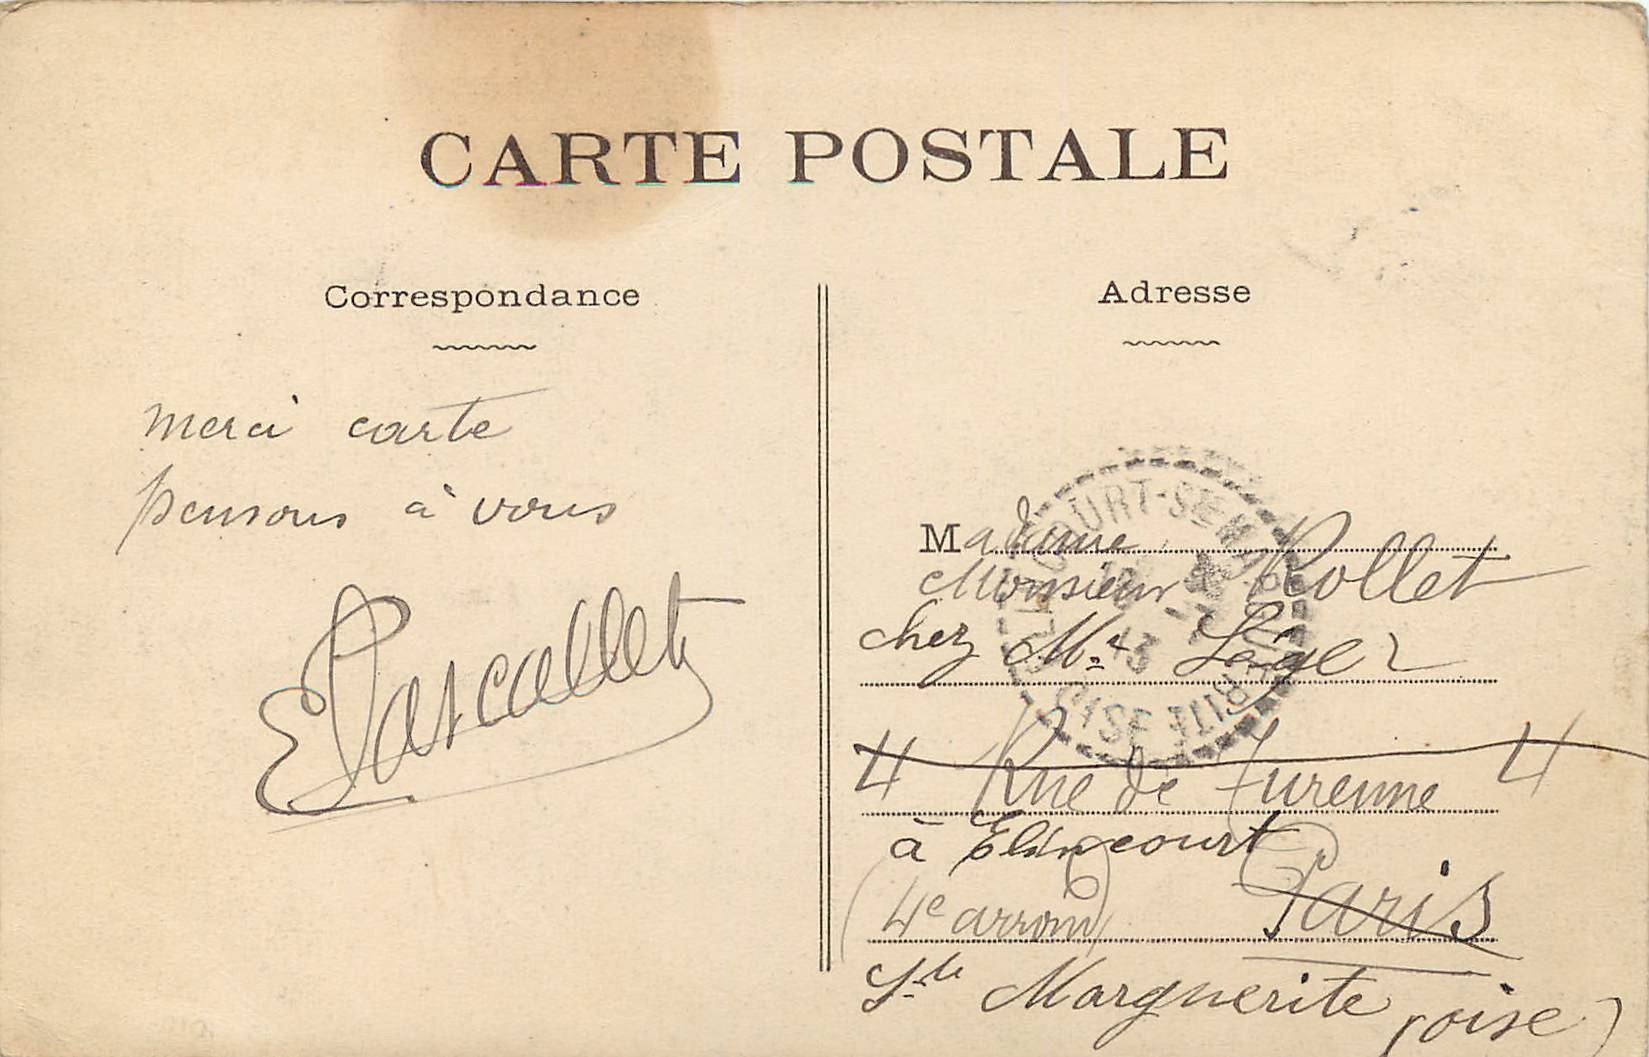 CARTE POSTALE
Correspondance
merci carte
pensons à vous
EPascallet
Adresse
Madame
Monsieur Rollet
chez Mr Léger
4 Rue de Turenne 4
à Elincourt
(4e arrond) Paris
Ste Marguerite (oise)
ELINCOURT-STE MARGUERITE
OISE
13